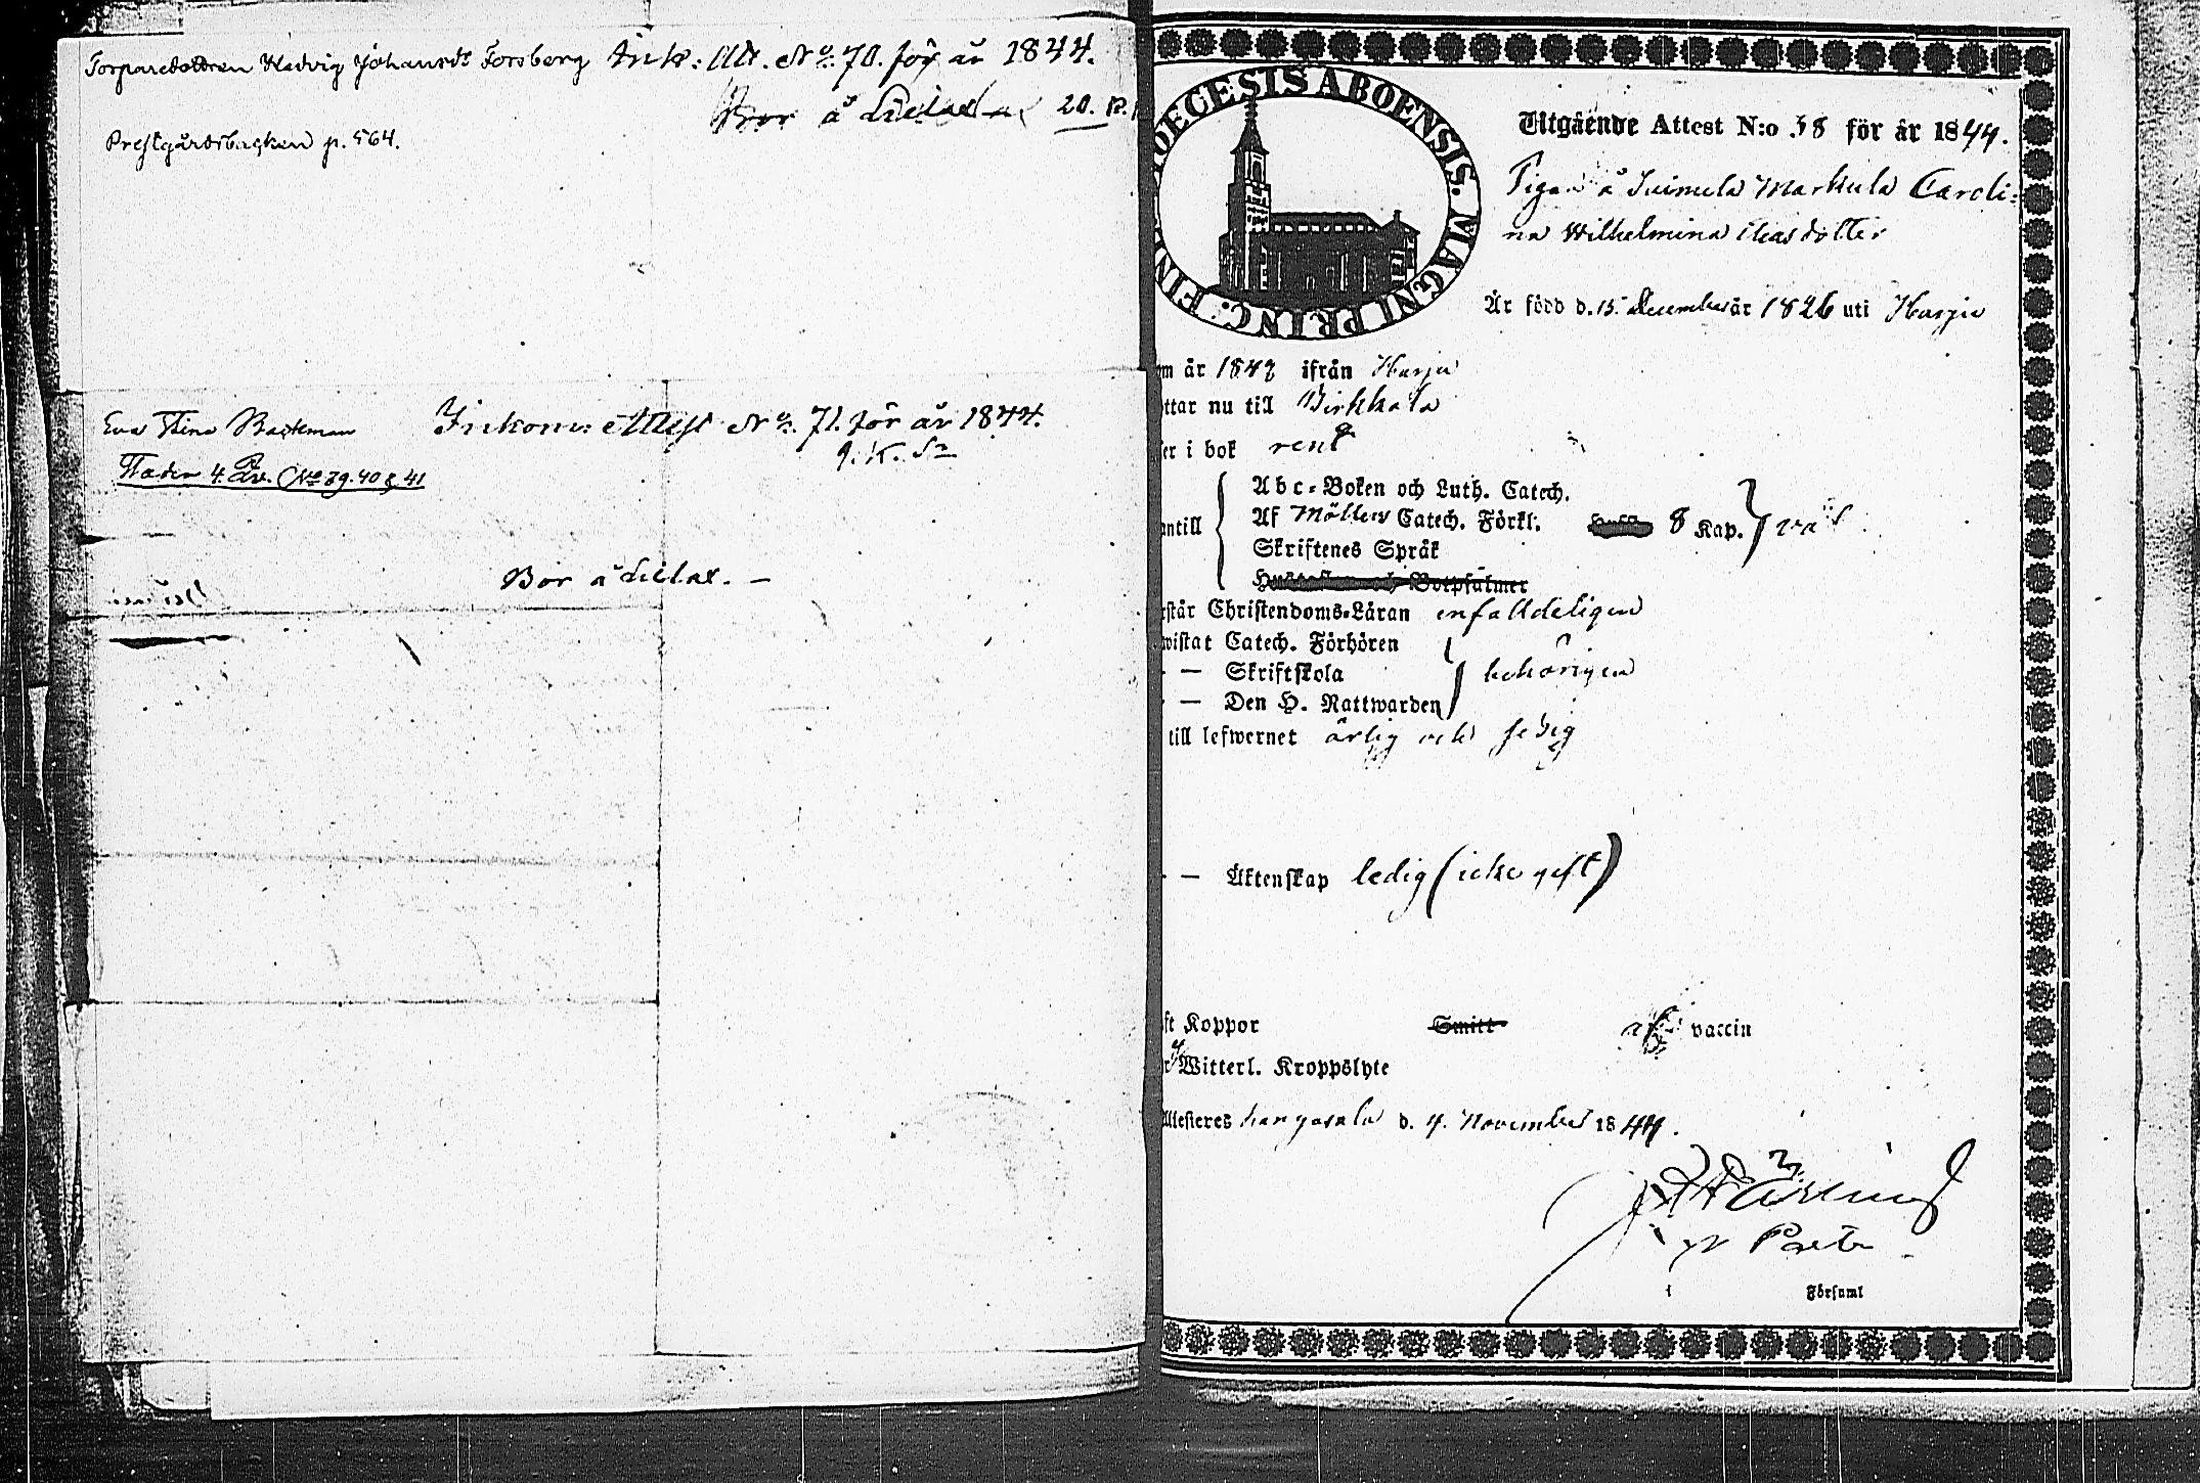 Torparedottren Hedvig Johansdr Forsberg Ink: Att. No: 70. för år 1844.
Bor å Lielax 20. K.
Prestgårdsbacken p. 564.
Eva Stina Backman Inkom: Attest No: 71. för år 1844.
g. K. Sn
Fader 4. No 39. 40 & 41
Bor å Lielax. —
DIOECESIS ABOENSIS. MAGNI PRINC. FIN
Utgående Attest N:o 58 för år 1844.
Pigan å Suimula Markula Caroli:
na Wilhelmina Eliasdotter
Är född d. 15 December år 1826 uti Harju
om år 1842 ifrån Harju
ttar nu till Birkkala
er i bok rent
Abc-Boken och Luth. Catech.
antill Af Möllers Catech. Förkl. 8 Kap. väl
Skriftenes Språk
Hustaflan och Botpsalmer
rstår Christendoms-Läran enfaldeligen
wistat Catech. Förhören
— Skriftskola behörigen
— Den H. Nattwarden
till lefwernet ärlig och sedig
— Äktenskap ledig (icke gift)
ft Koppor Smitt af vaccin
Witterl. Kroppslyte
Attesteres Kangasala d. 4. November 1844.
Församl